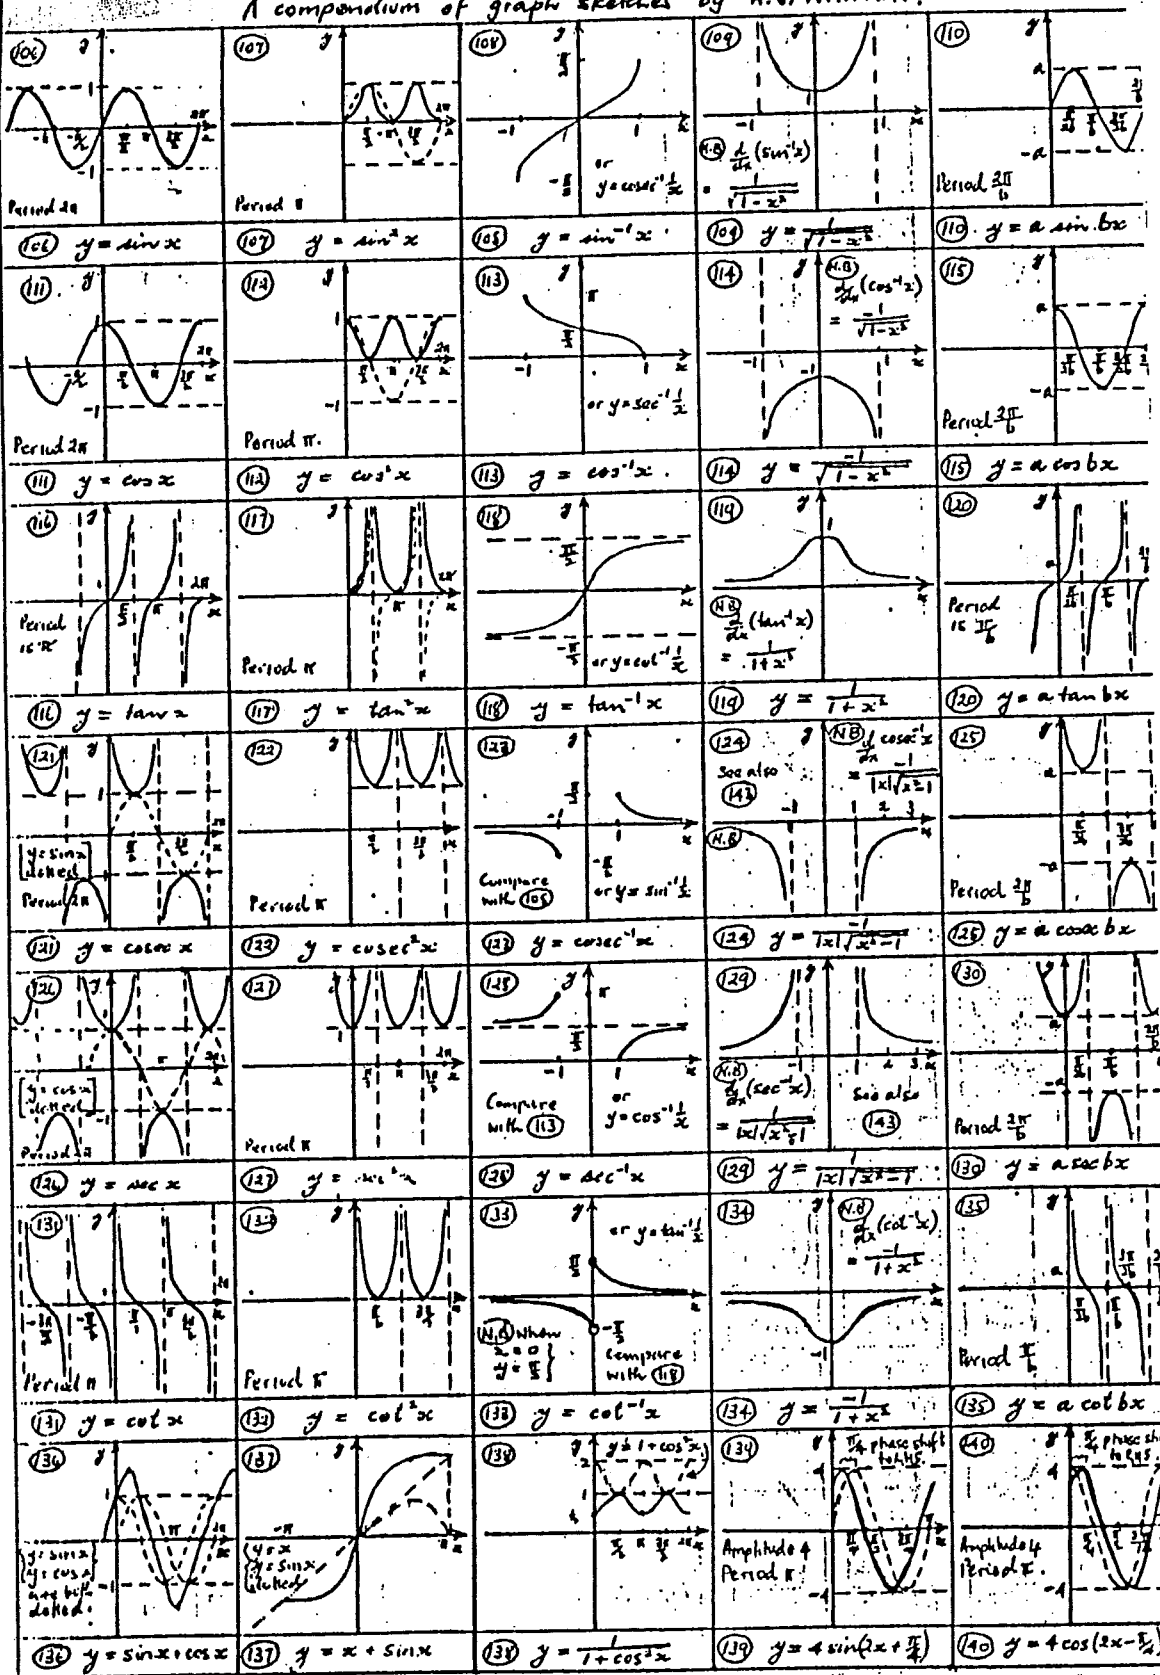 A compendium of graph sketches by
106
Period 2π
106 y = sin x
107
Period π
107 y = sin² x
108
or
y = cosec⁻¹ 1/x
108 y = sin⁻¹ x
109
N.B d/dx (sin⁻¹x)
= 1/√(1 - x²)
109 y = 1/√(1 - x²)
110
Period 2π/b
110 y = a sin bx
111
Period 2π
111 y = cos x
112
Period π.
112 y = cos² x
113
or y = sec⁻¹ 1/x
113 y = cos⁻¹ x
114
N.B
d/dx (cos⁻¹x)
= -1/√(1-x²)
114 y = -1/√(1 - x²)
115
Period 2π/b
115 y = a cos bx
116
Period
is π
116 y = tan x
117
Period π
117 y = tan² x
118
or y = cot⁻¹ 1/x
118 y = tan⁻¹ x
119
N.B
d/dx (tan⁻¹x)
= 1/(1+x²)
119 y = 1/(1 + x²)
120
Period
is π/b
120 y = a tan bx
121
[y = sin x
dotted]
Period 2π
121 y = cosec x
122
Period π
122 y = cosec² x
123
Compare
with 108
or y = sin⁻¹ 1/x
123 y = cosec⁻¹ x
124
See also
143
N.B
d/dx cosec⁻¹x
= -1/(|x|√(x²-1))
N.B
124 y = -1/(|x|√(x²-1))
125
Period 2π/b
125 y = a cosec bx
126
[y = cos x
dotted]
126 y = sec x
127
Period π
127 y =
128
Compare
with 113
or
y = cos⁻¹ 1/x
128 y = sec⁻¹ x
129
N.B
d/dx (sec⁻¹x)
= 1/(|x|√(x²-1))
See also
143
129 y = 1/(|x|√(x²-1))
130
Period 2π/b
130 y = a sec bx
131
Period π
131 y = cot x
132
Period π
132 y = cot² x
133
or y = tan⁻¹ 1/x
N.B When
x = 0
y = π/2
Compare
with 118
133 y = cot⁻¹ x
134
N.B
d/dx (cot⁻¹x)
= -1/(1+x²)
134 y = -1/(1 + x²)
135
Period π/b
135 y = a cot bx
136
{y = sin x
y = cos x
are both
dotted.
136 y = sin x + cos x
137
{y = x
y = sin x
dotted
137 y = x + sin x
138
y = 1 + cos² x
138 y = 1/(1 + cos² x)
139
π/4 phase shift
to LHS
Amplitude 4
Period π
139 y = 4 sin(2x + π/4)
140
phase
to RHS
Amplitude 4
Period π.
140 y = 4 cos(2x -